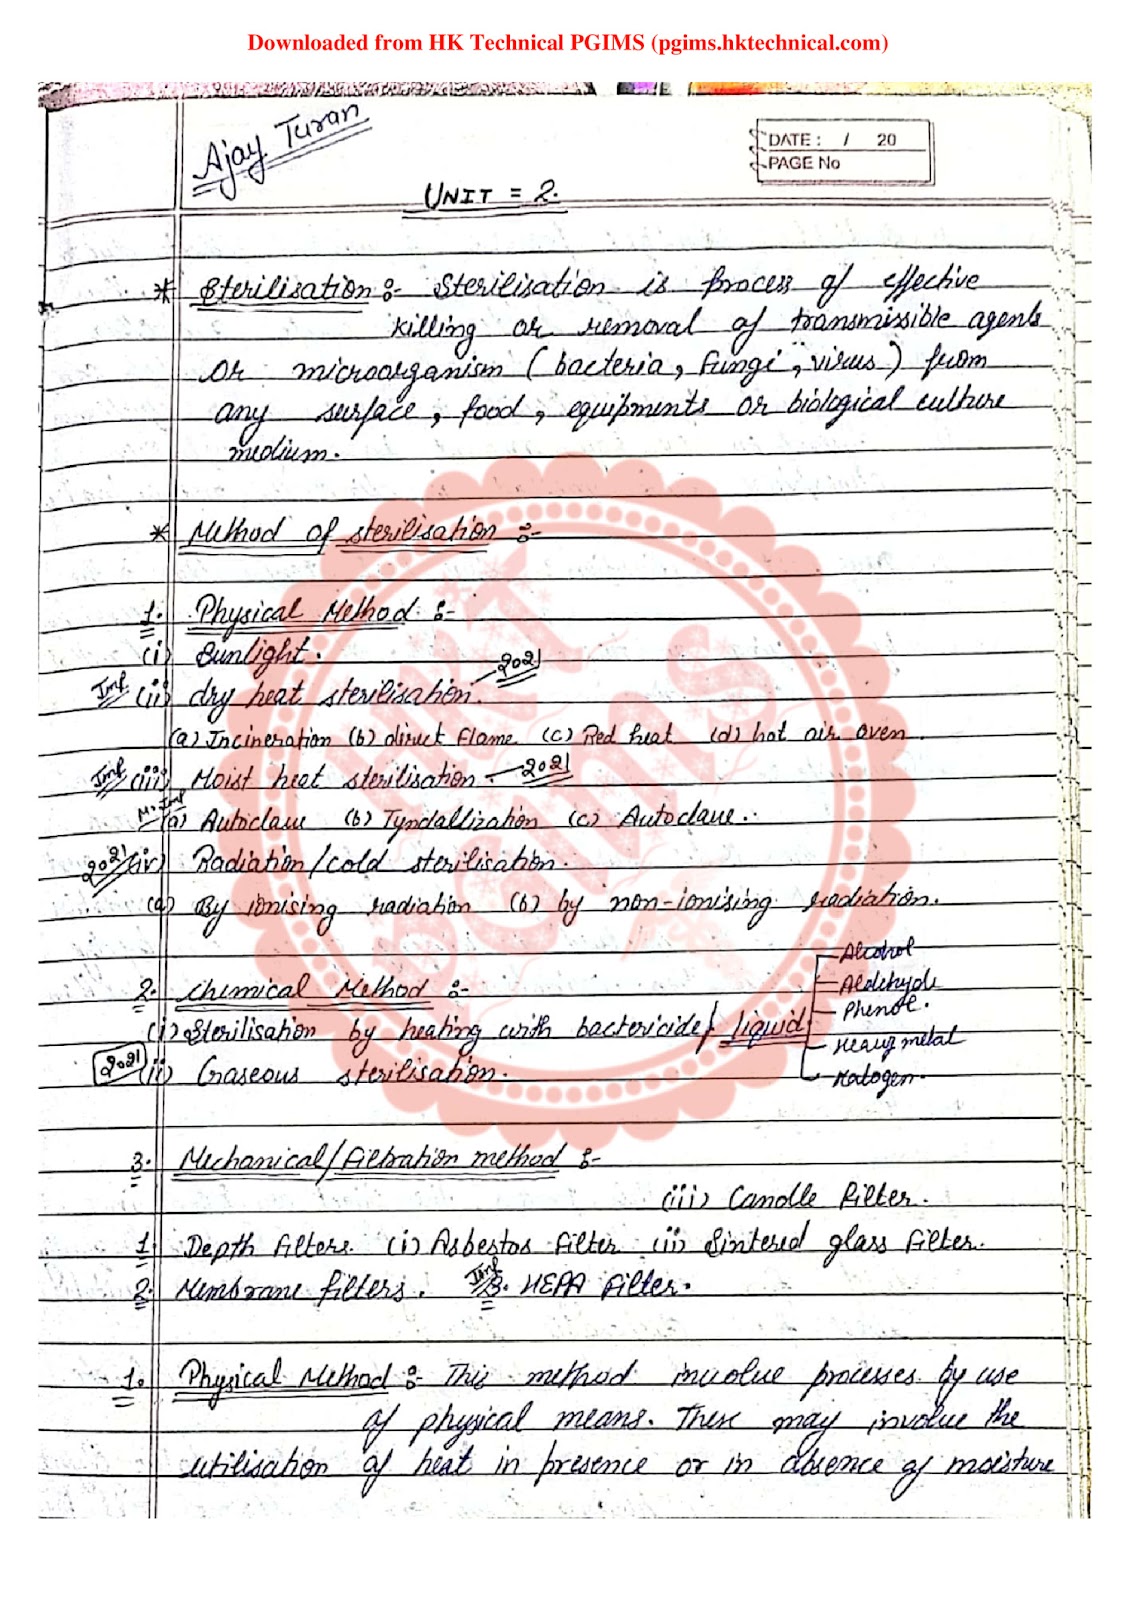 Downloaded from HK Technical PGIMS (pgims.hktechnical.com)
Ajay Turan
DATE : / 20
PAGE No
UNIT = 2.
* Sterilisation :- Sterilisation is process of effective
killing or removal of transmissible agents
or microorganism (bacteria, fungi, virus) from
any surface, food, equipments or biological culture
medium.
* Method of sterilisation :-
1. Physical Method :-
(i) Sunlight.
Imp (ii) dry heat sterilisation. 2021
(a) Incineration (b) direct flame (c) Red heat (d) hot air oven.
Imp (iii) Moist heat sterilisation 2021
M. Imp (a) Autoclave (b) Tyndallization (c) Autoclave.
2021 (iv) Radiation/cold sterilisation.
(a) By ionising radiation (b) by non-ionising radiation.
2. Chemical Method :-
(i) Sterilisation by heating with bactericide/liquid
Alcohol
Aldehyde
Phenol.
Heavy metal
Halogen.
2021 (ii) Gaseous sterilisation.
3. Mechanical/filtration method :-
(iii) Candle filter.
1. Depth filters. (i) Asbestos filter (ii) Sintered glass filter.
2. Membrane filters. Imp 3. HEPA filter.
1. Physical Method :- This method involve processes by use
of physical means. These may involve the
utilisation of heat in presence or in absence of moisture
HKT
PGIMS